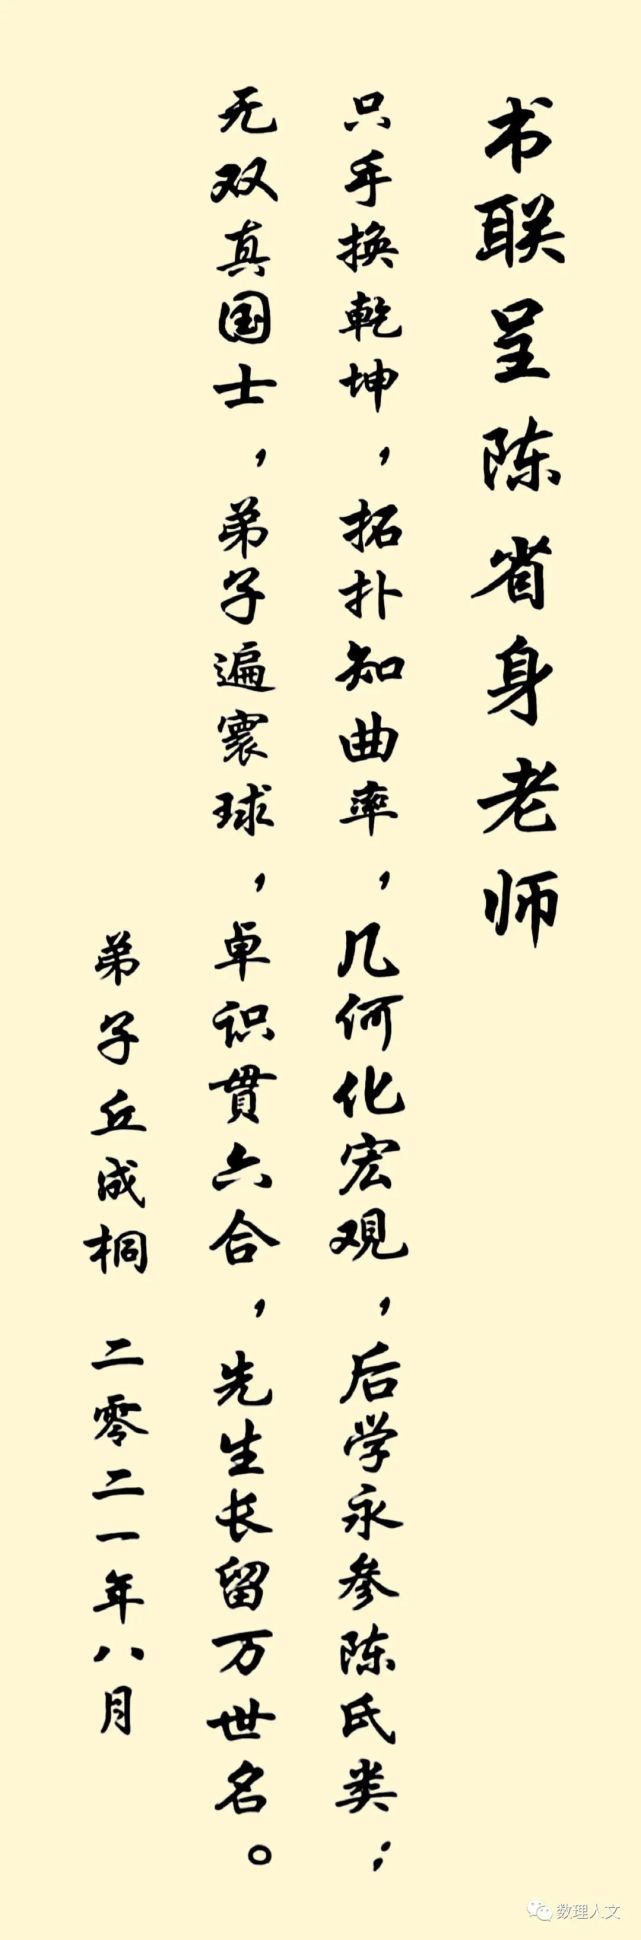 书联呈陈省身老师
只手换乾坤，拓扑知曲率，几何化宏观，后学永参陈氏类；
无双真国士，弟子遍寰球，卓识贯六合，先生长留万世名。
弟子丘成桐 二零二一年八月
数理人文